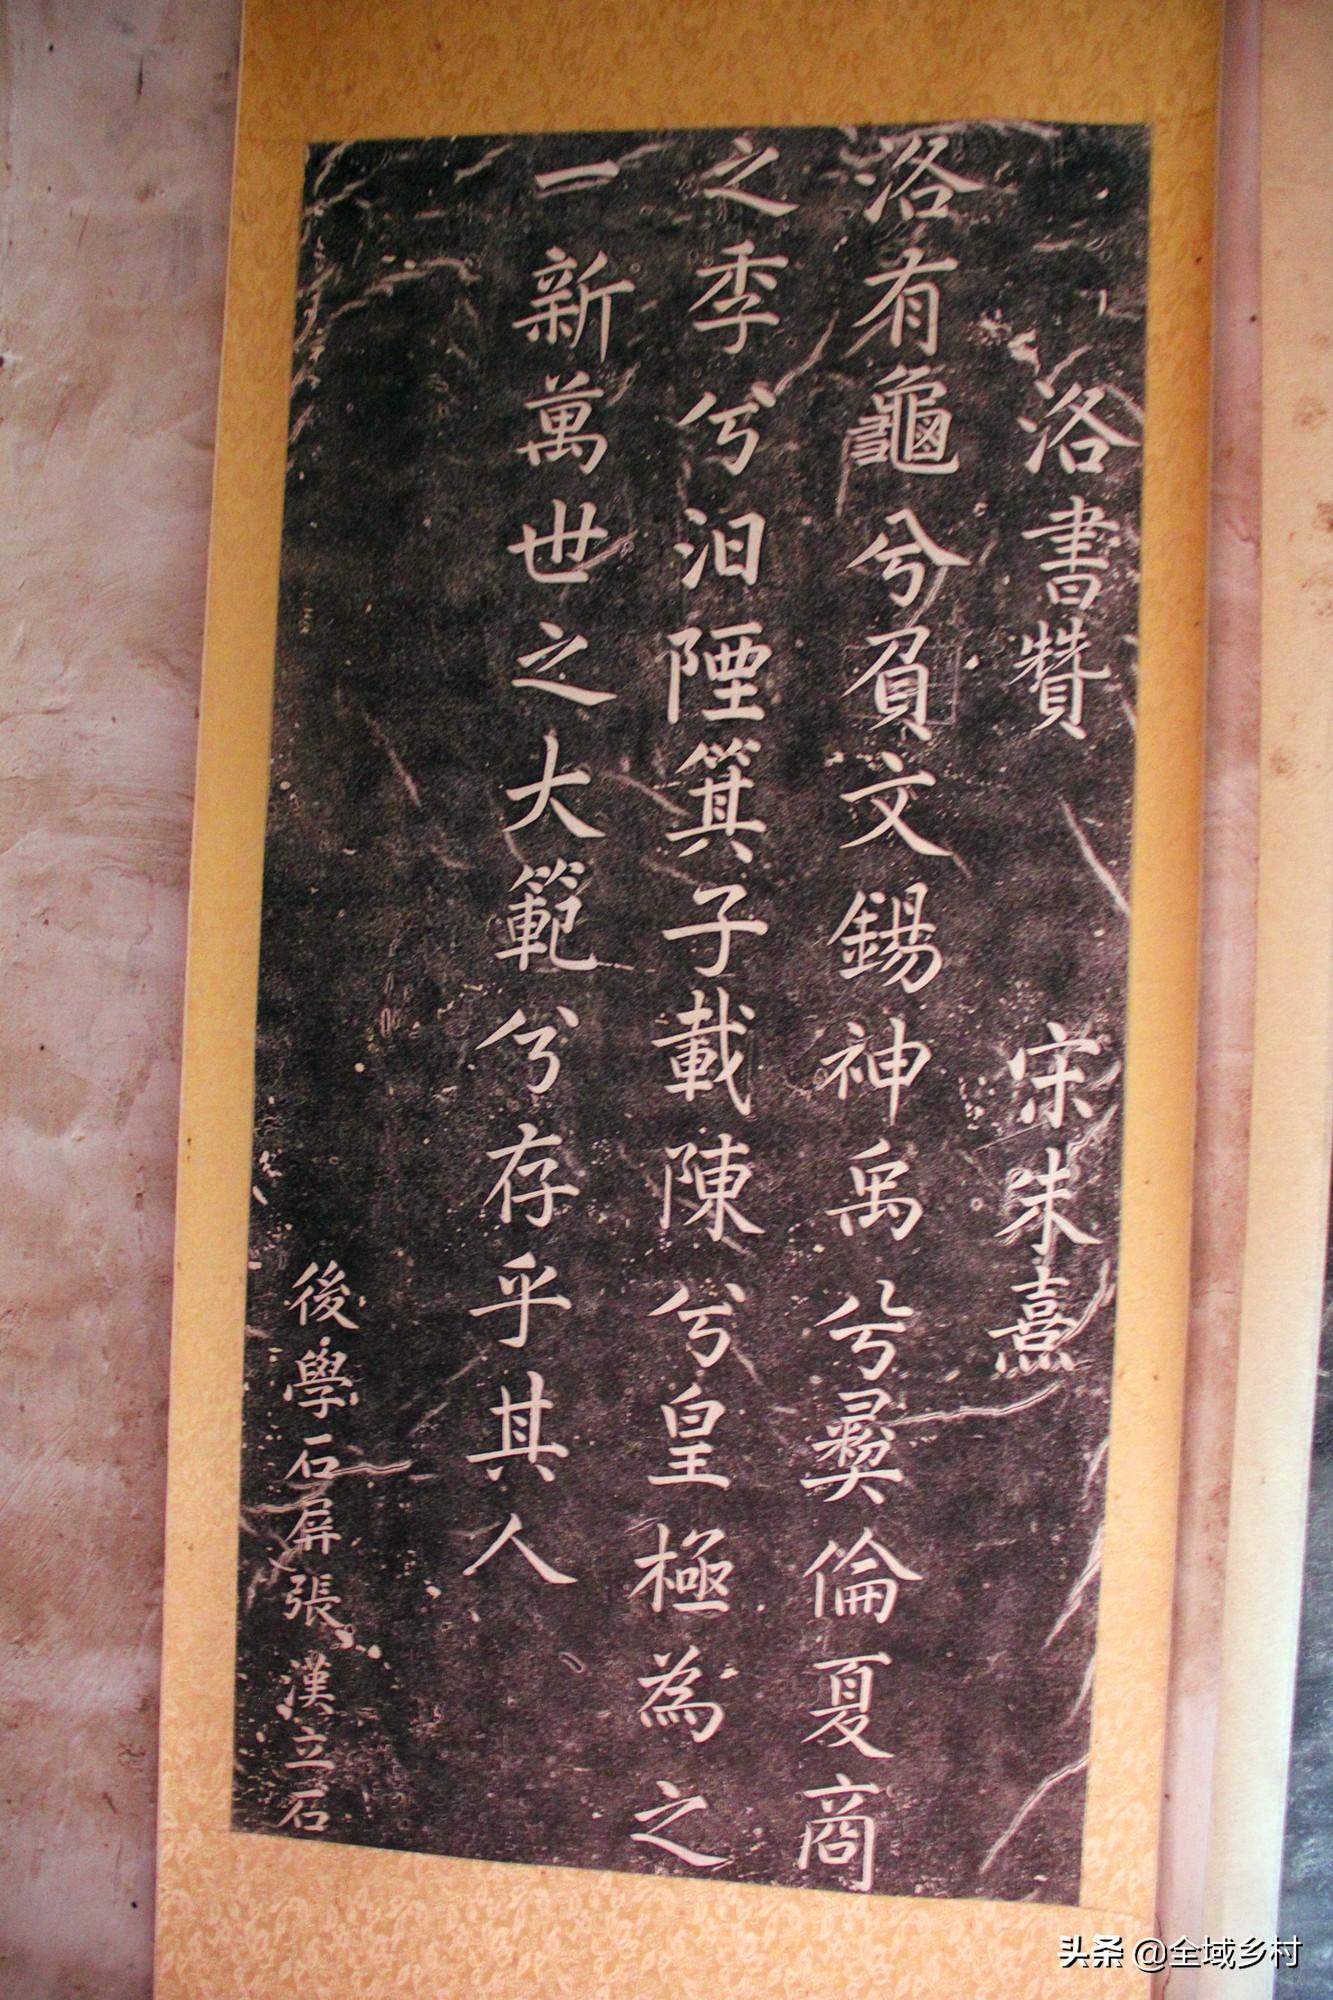 洛書贊 宋朱熹
洛有龜兮負文錫神禹兮彝倫夏商
之季兮汩陻箕子載陳兮皇極為之
一新萬世之大範兮存乎其人
後學石屏張漢立石
头条 @全域乡村